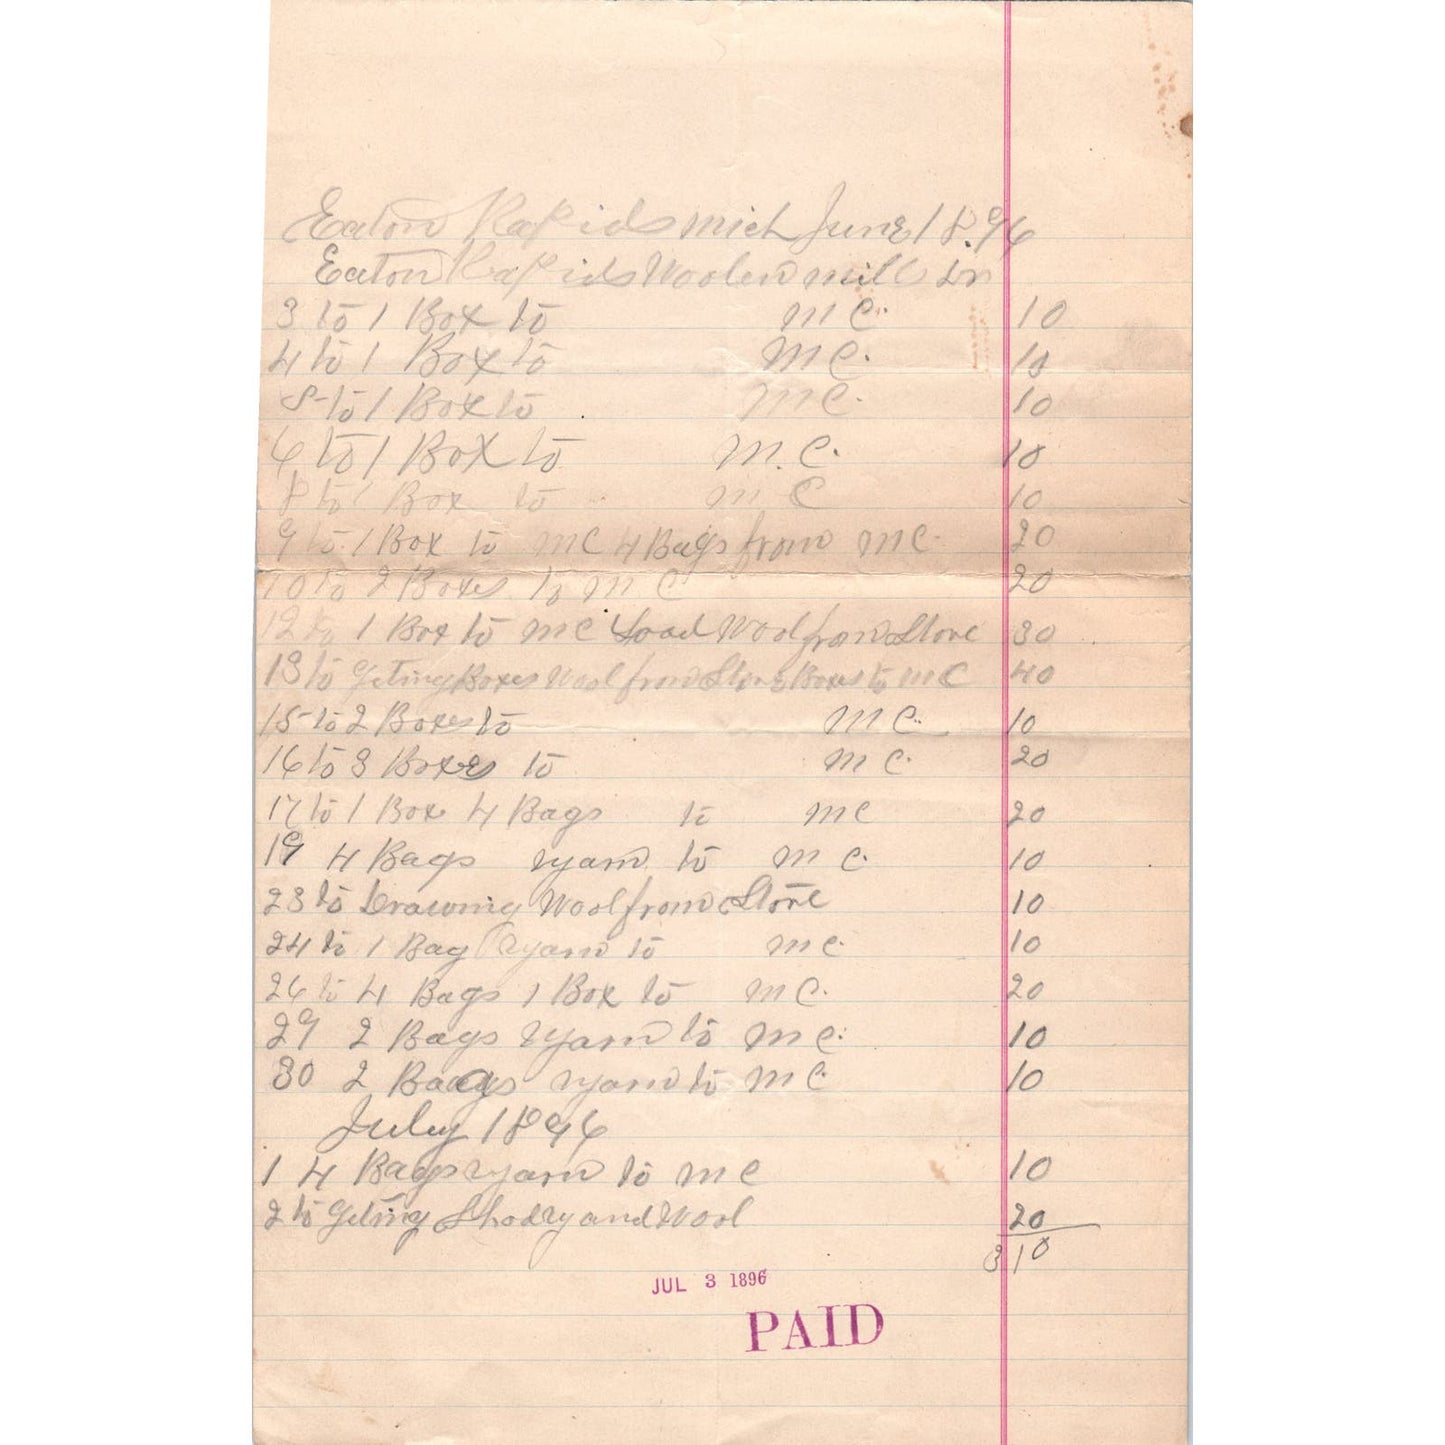 Eaton Rapids Mich June 1896
Eaton Rapids Woolen mill Dr
3 to 1 Box to M C. 10
4 to 1 Box to M C. 10
5 to 1 Box to M C. 10
6 to 1 Box to M. C. 10
8 to 1 Box to M C 10
9 to 1 Box to M C 4 Bags from M C. 20
10 to 2 Boxes to M C 20
12 to 1 Box to M C Load Wool from Store 30
13 to Geting Boxes Wool from Store Boxes to M C 40
15 to 2 Boxes to M C. 10
16 to 3 Boxes to M C. 20
17 to 1 Box 4 Bags to M C 20
19 4 Bags yarn to M C. 10
23 to Drawing Wool from Store 10
24 to 1 Bag yarn to M C. 10
26 to 4 Bags 1 Box to M C. 20
29 2 Bags yarn to M C. 10
30 2 Bags yarn to M C. 10
July 1896
1 4 Bags yarn to M C 10
2 to Geting Shodry and Wool 20
3 10
JUL 3 1896
PAID